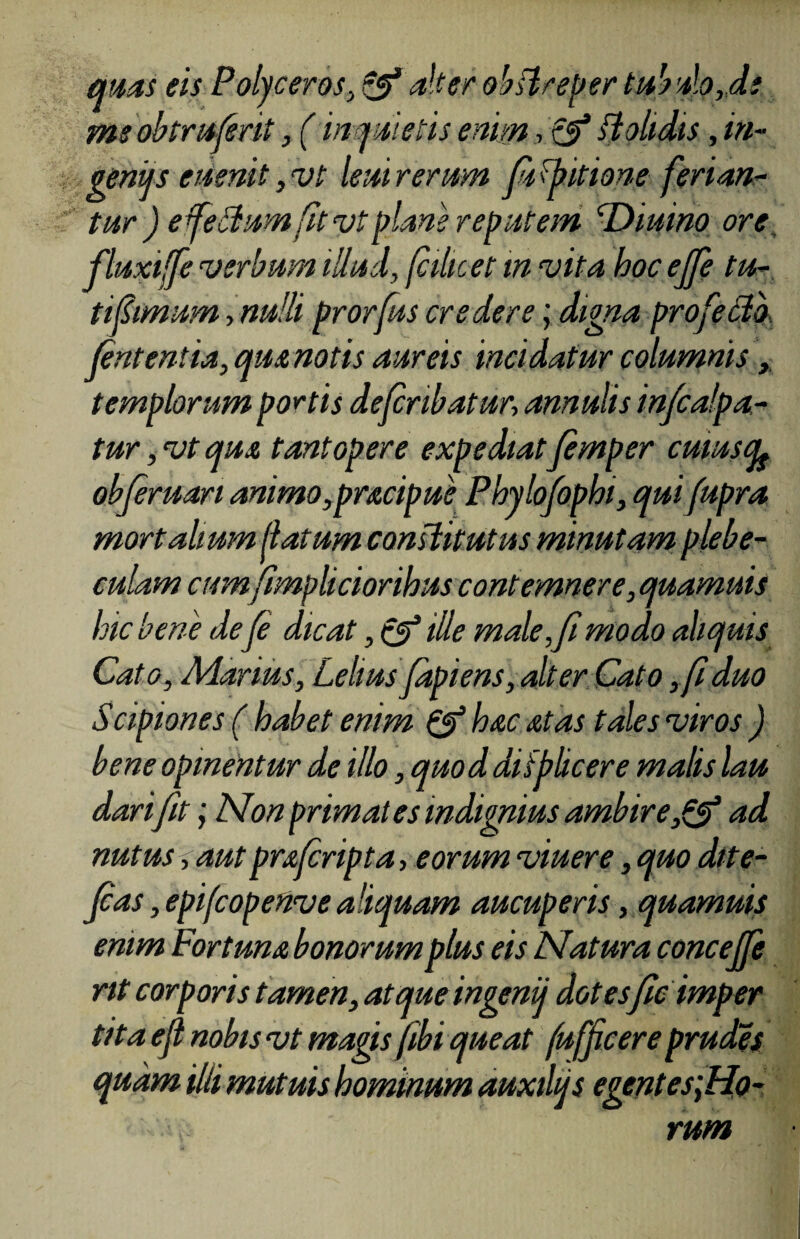 quas eis Polyceros, & alter obſtreper tubulo, de
me obtruſerit, ( inquietis enim, & ſtolidis, in-
genijs euenit, vt leui rerum ſuſpitione ferian-
tur ) effectum ſit vt planè reputem Diuino ore
fluxiſſe verbum illud, ſcilicet in vita hoc eſſe tu-
tiſsimum, nulli prorſus credere; digna profectò
ſententia, quæ notis aureis incidatur columnis,
templorum portis deſcribatur, annulis inſcalpa-
tur, vt quæ tantopere expediat ſemper cuiusq;
obſeruari animo, præcipuè Phyloſophi, qui ſupra
mortalium ſtatum conſtitutus minutam plebe-
culam cum ſimplicioribus contemnere, quamuis
hic benè de ſe dicat, & ille male, ſi modo aliquis
Cato, Marius, Lelius ſapiens, alter Cato, ſi duo
Scipiones ( habet enim & hæc ætas tales viros )
bene opinentur de illo, quod diſplicere malis lau
dari ſit; Non primates indignius ambire, & ad
nutus, aut præſcripta, eorum viuere, quo dite-
ſcas, epiſcopenve aliquam aucuperis, quamuis
enim Fortunæ bonorum plus eis Natura conceſſe
rit corporis tamen, atque ingenij dotes ſic imper
tita eſt nobis vt magis ſibi queat ſufficere prudēs
quàm illi mutuis hominum auxilijs egentes; Ho-
rum